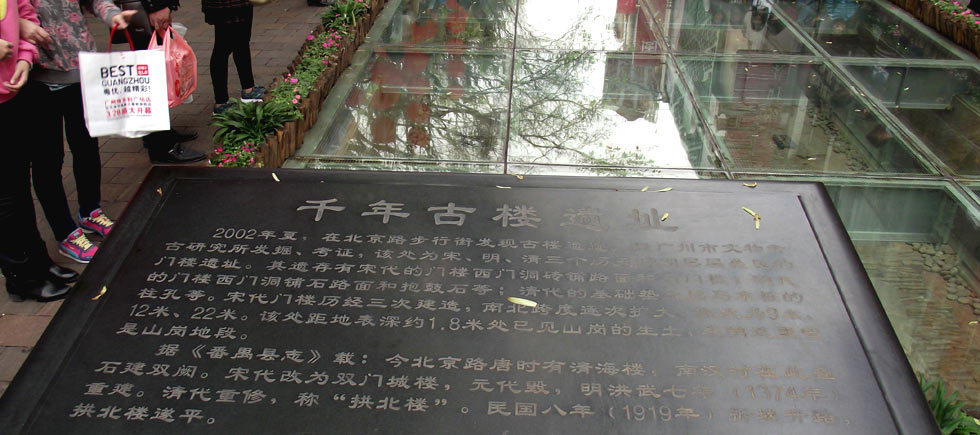 BEST
GUANGZHOU
粤优，越精彩！
1.28盛大开幕
千年古楼遗址
2002年夏，在北京路步行街发现古楼遗址 广州市文物考
古研究所发掘、考证，该处为宋、明、清三个历
门楼遗址。其遗存有宋代的门楼西门洞砖铺路面和
的门楼西门洞铺石路面和抱鼓石等；清代的基础垫 的
柱孔等。宋代门楼历经三次建造，南北跨度逐次扩大
12米、22米。该处距地表深约1.8米处已见山岗的生土，
是山岗地段。
据《番禺县志》载：今北京路唐时有清海楼，南汉
石建双阙。宋代改为双门城楼，元代毁，明洪武七年（1374年）
重建。清代重修，称“拱北楼”。民国八年（1919年）拆城开路，
拱北楼遂平。